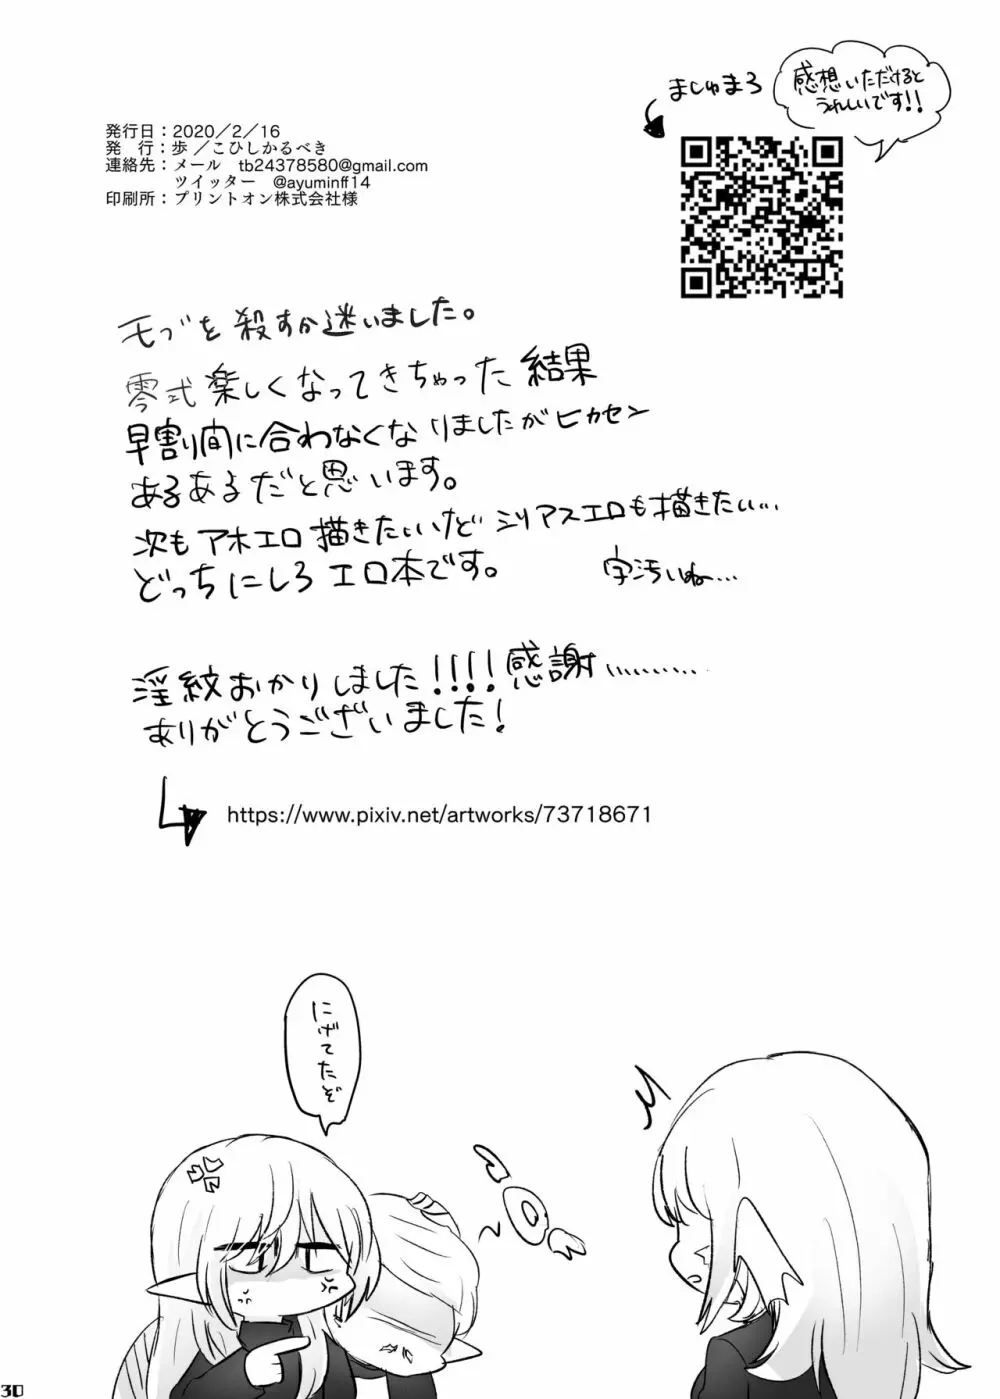 ましゅまろ
感想いただけると
うれしいです!!
発行日：2020／2／16
発　行：歩 ／こひしかるべき
連絡先：メール　tb24378580@gmail.com
ツイッター　@ayuminff14
印刷所：プリントオン株式会社様
モブを殺すか迷いました。
零式楽しくなってきちゃった結果
早割り間に合わなくなりましたがヒカセン
あるあるだと思います。
次もアホエロ描きたいけどシリアスエロも描きたい…
どっちにしろエロ本です。
字汚いね〜…
淫紋おかりしました!!!!感謝…………
ありがとうございました!
https://www.pixiv.net/artworks/73718671
にげてたぞ
30